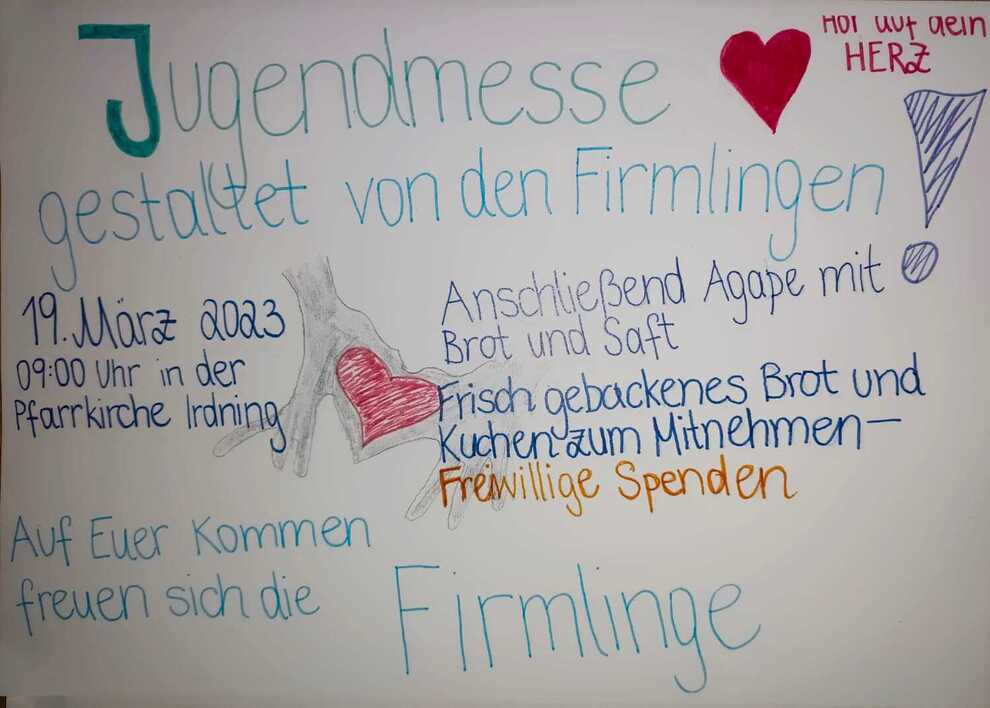 Jugendmesse
Hör auf dein
HERZ
gestaltet von den Firmlingen
19. März 2023
09:00 Uhr in der
Pfarrkirche Irdning
Anschließend Agape mit
Brot und Saft
Frisch gebackenes Brot und
Kuchen zum Mitnehmen—
Freiwillige Spenden
Auf Euer Kommen
freuen sich die
Firmlinge